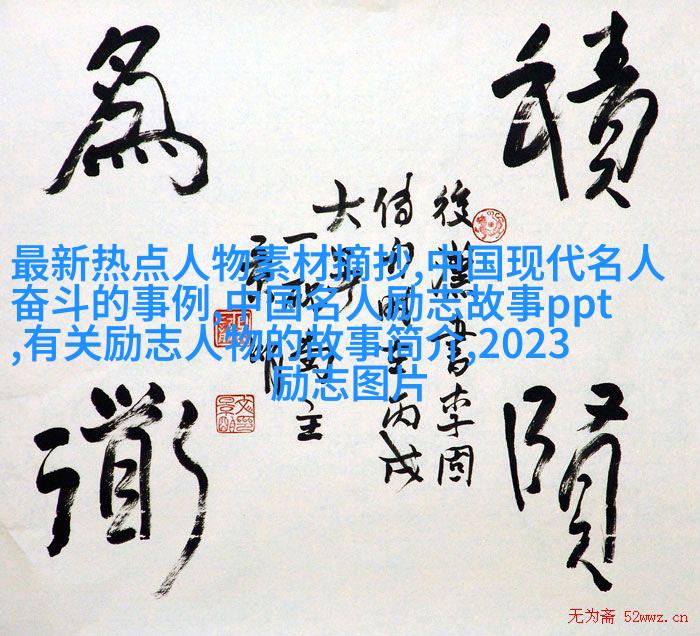 積賢
為衟
後漢書李固
最新热点人物素材摘抄,中国现代名人
奋斗的事例,中国名人励志故事ppt
,有关励志人物的故事简介,2023
励志图片
无为斋 52wwz.cn